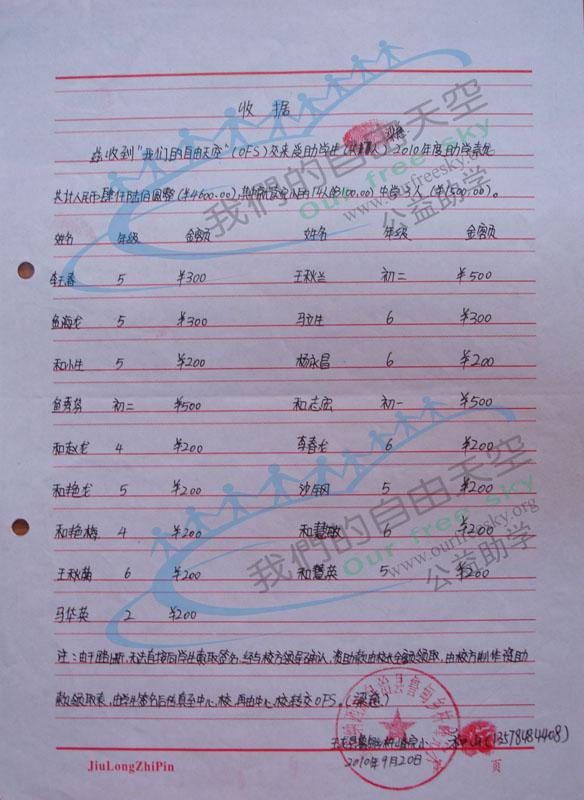 收 据
兹收到"我们的自由天空"(OFS)交来受助学生(共17人)2010年度助学款
共计人民币肆仟陆佰圆整(¥4600.00),其中 小学14人(¥3100.00)中学3人(¥1500.00)。
姓名 年级 金额 姓名 年级 金额
李玉春 5 ¥300 王秋兰 初二 ¥500
鱼海龙 5 ¥300 马立生 6 ¥300
和小生 5 ¥200 杨永昌 6 ¥200
鱼秀芬 初二 ¥500 和志宏 初一 ¥500
和赵龙 4 ¥200 李春龙 6 ¥200
和艳龙 5 ¥200 沙 5 ¥200
和艳梅 4 ¥200 和慧敏 6 ¥200
王秋菊 6 ¥200 和慧英 5 ¥200
马华英 2 ¥200
注:由于 ,无法直接由学生 取签名,经与校方领导确认,资助款由校长全额领取,由校方制作资助
款领取表,由学生签名后传真至中心校,再由中心校转交OFS。
小 (13578484408)
2010年9月20日
JiuLongZhiPin 页
我們的自由天空
Our free sky
www.ourfreesky.org
公益助学
我們的自由天空
Our free sky
www.ourfreesky.org
公益助学